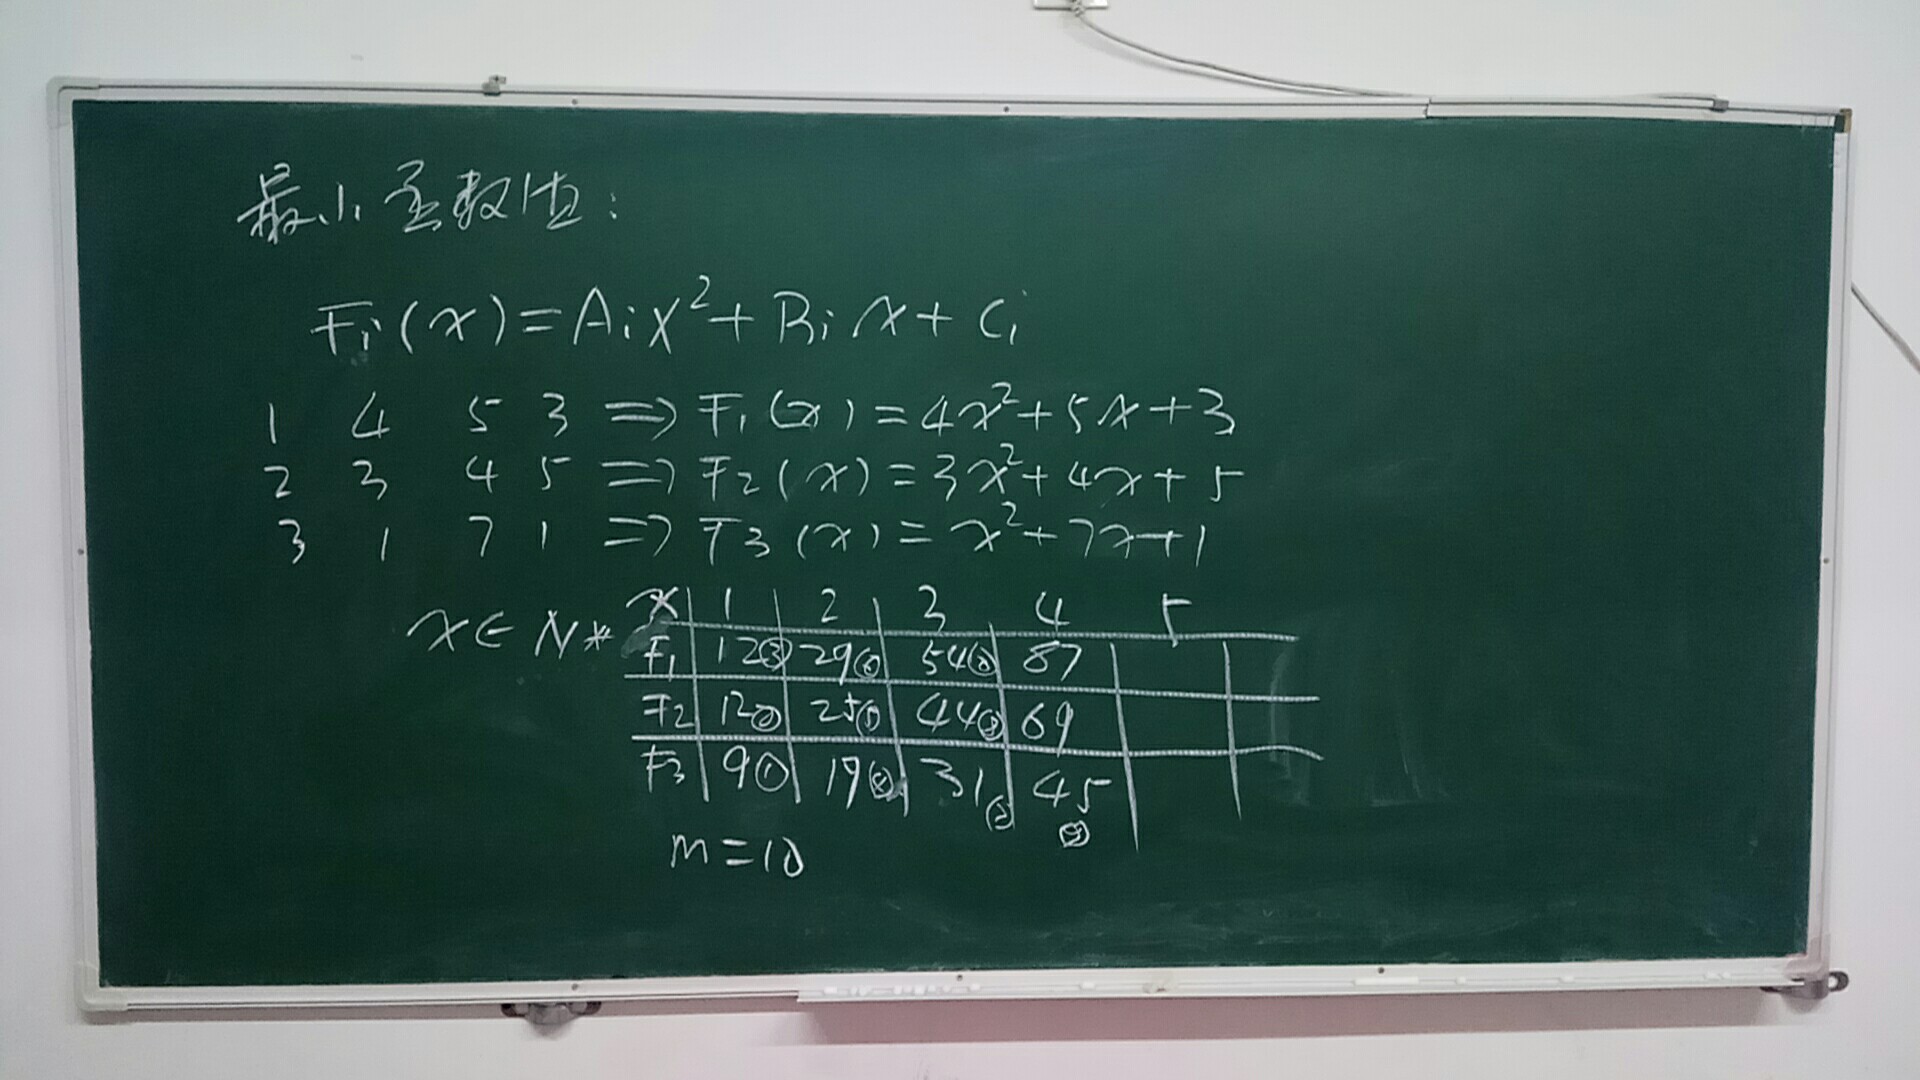 最小函数值:
Fi(x)=Aix²+Bix+Ci
1 4 5 3 => F1(x)=4x²+5x+3
2 3 4 5 => F2(x)=3x²+4x+5
3 1 7 1 => F3(x)=x²+7x+1
x∈N*
x 1 2 3 4 5
F1 12③ 29⑥ 54 87
F2 12② 25⑤ 44⑧ 69
F3 9① 19④ 31⑦ 45⑨
m=10